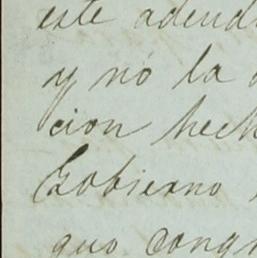 este adeud
y no la
cion hech
Gobierno
quo congr